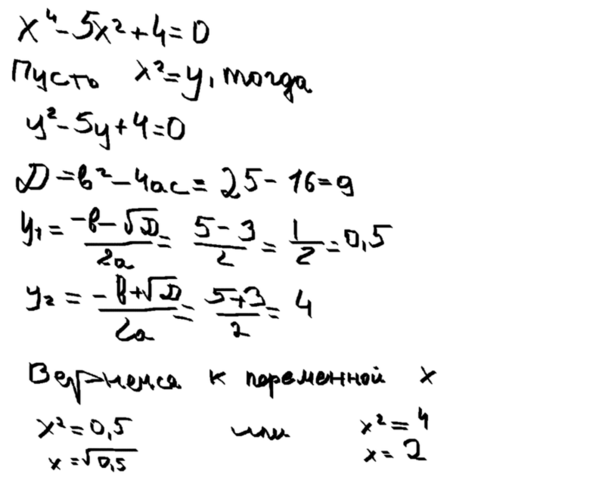 x⁴-5x²+4=0
Пусть x²=y, тогда
y²-5y+4=0
D=b²-4ac=25-16=9
y₁=(-b-√D)/2a=(5-3)/2=1/2=0,5
y₂=(-b+√D)/2a=(5+3)/2=4
Вернемся к переменной x
x²=0,5 или x²=4
x=√0,5 x=2